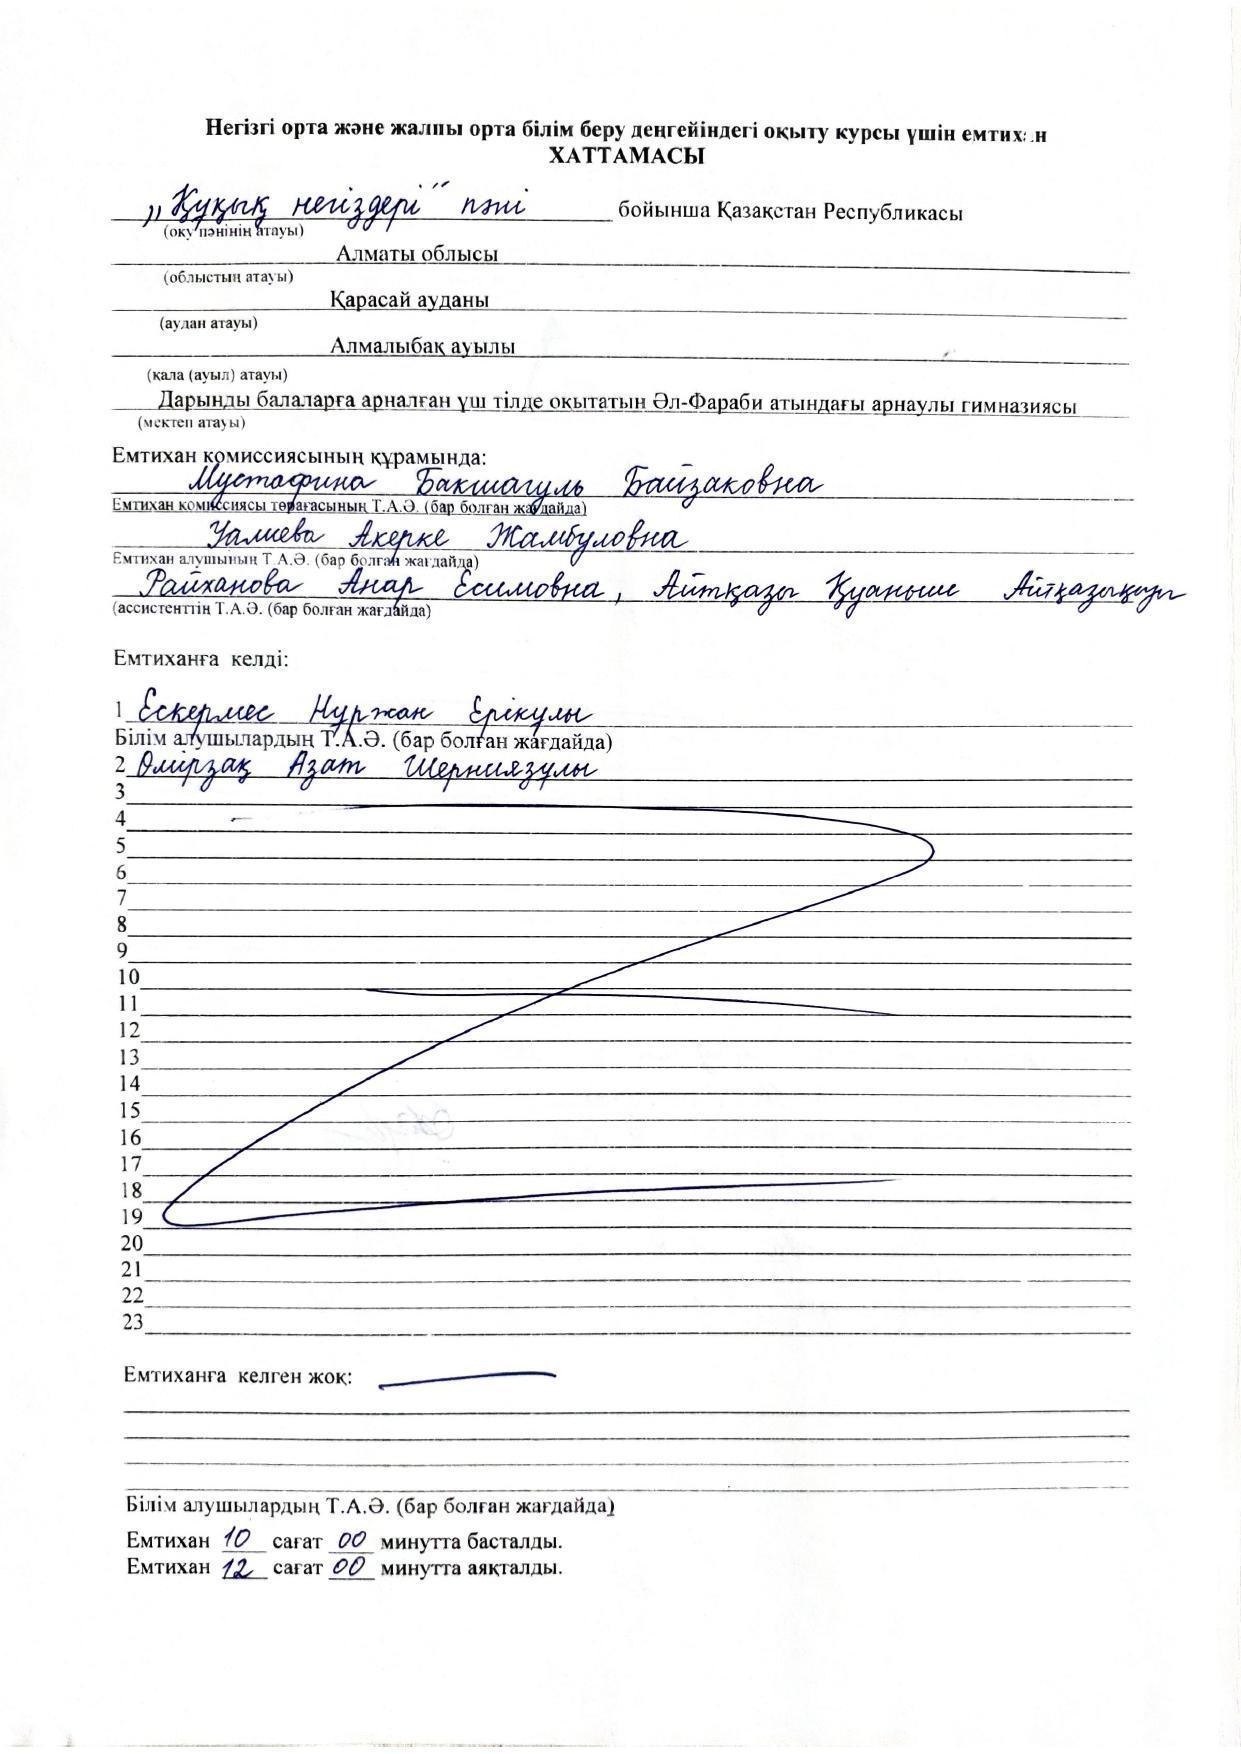 Негізгі орта және жалпы орта білім беру деңгейіндегі оқыту курсы үшін емтихан
ХАТТАМАСЫ
„Құқық негіздері" пәні бойынша Қазақстан Республикасы
(оқу пәнінің атауы)
Алматы облысы
(облыстың атауы)
Қарасай ауданы
(аудан атауы)
Алмалыбақ ауылы
(қала (ауыл) атауы)
Дарынды балаларға арналған үш тілде оқытатын Әл-Фараби атындағы арнаулы гимназиясы
(мектеп атауы)
Емтихан комиссиясының құрамында:
Мустафина Бакшагуль Байзаковна
Емтихан комиссиясы төрағасының Т.А.Ә. (бар болған жағдайда)
Уалиева Акерке Жамбуловна
Емтихан алушының Т.А.Ә. (бар болған жағдайда)
Райханова Анар Есимовна, Айтқазы Қуаныш Айтқазықызы
(ассистенттің Т.А.Ә. (бар болған жағдайда)
Емтиханға келді:
1 Ескермес Нуржан Ерікулы
Білім алушылардың Т.А.Ә. (бар болған жағдайда)
2 Өмірзақ Азат Шерниязулы
3
4
5
6
7
8
9
10
11
12
13
14
15
16
17
18
19
20
21
22
23
Емтиханға келген жоқ:
Білім алушылардың Т.А.Ә. (бар болған жағдайда)
Емтихан 10 сағат 00 минутта басталды.
Емтихан 12 сағат 00 минутта аяқталды.